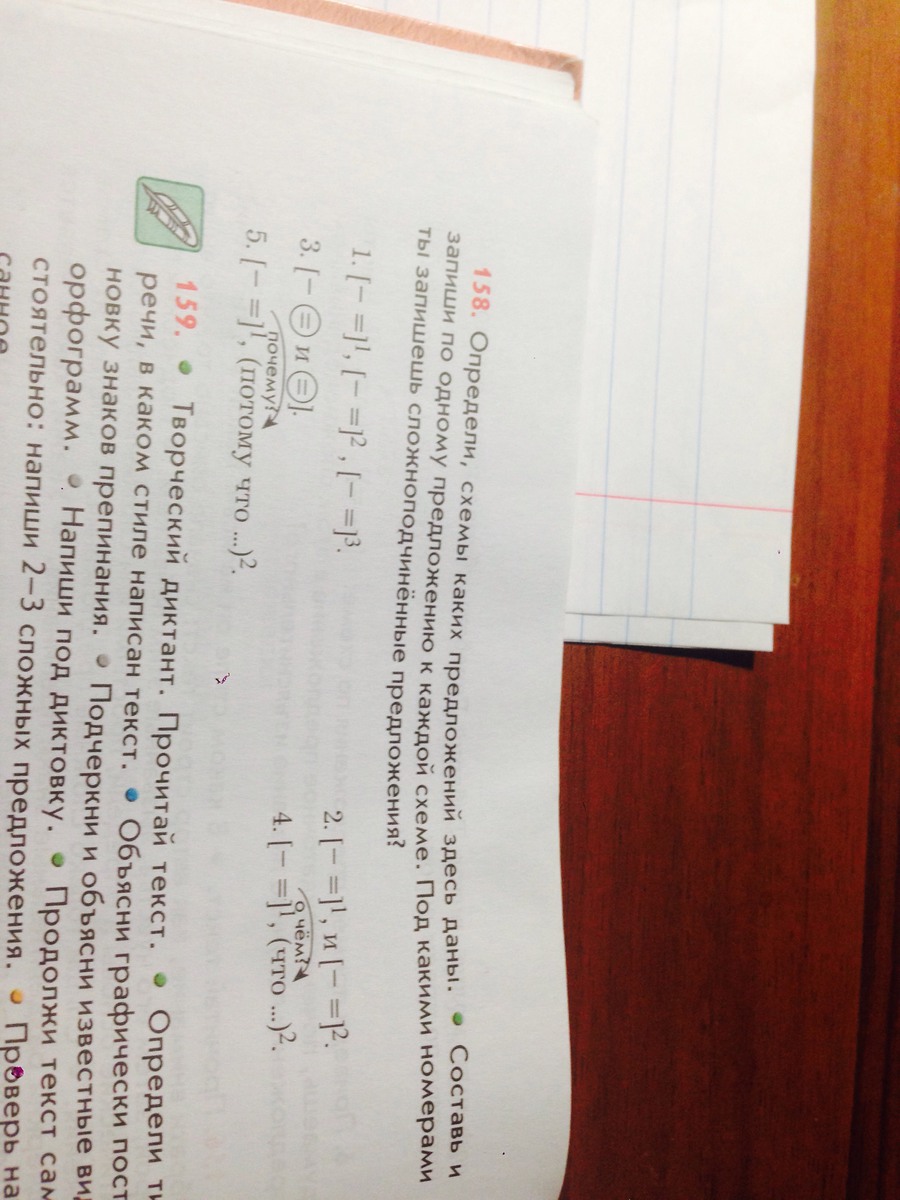 158. Определи, схемы каких предложений здесь даны. • Составь и
запиши по одному предложению к каждой схеме. Под какими номерами
ты запишешь сложноподчинённые предложения?
1. [– =]¹, [– =]², [– =]³.
2. [– =]¹, и [– =]².
3. [– = и =].
о чём?
4. [– =]¹, (что ...)².
почему?
5. [– =]¹, (потому что ...)².
159. • Творческий диктант. Прочитай текст. • Определи ти
речи, в каком стиле написан текст. • Объясни графически пост
новку знаков препинания. • Подчеркни и объясни известные ви
орфограмм. • Напиши под диктовку. • Продолжи текст сам
стоятельно: напиши 2–3 сложных предложения. • Проверь на
санное